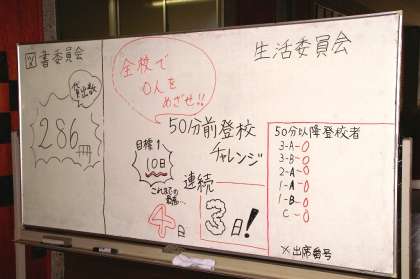 図書委員会
貸出数
286冊
全校で
0人を
めざせ!!
生活委員会
50分前登校
チャレンジ
目標!
10日
これまでの
最高…
4日
連続
3日!
50分以降登校者
3-A-0
3-B-0
2-A-0
1-A-0
1-B-0
C-0
※出席番号